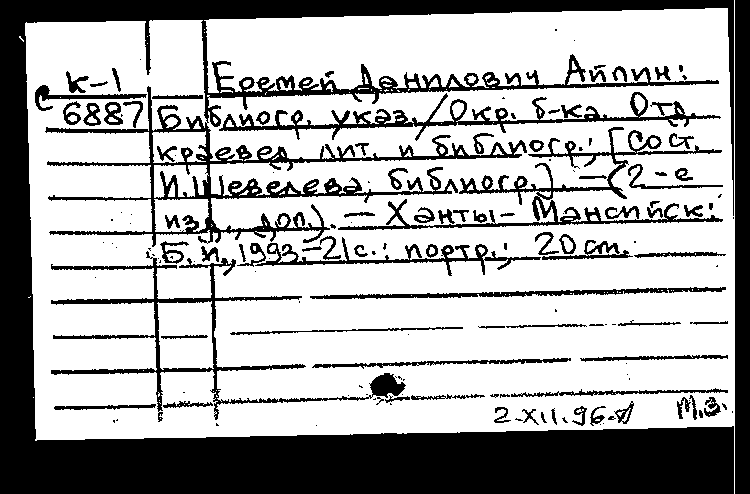 К-1 Еремей Данилович Айпин:
с 6887 Библиогр. указ./Окр. б-ка. Отд.
краевед. лит. и библиогр.; [Сост.
И.Шевелева, библиогр.]. —(2-е
изд., доп.). — Ханты-Мансийск:
Б. и., 1993.-21с.: портр.; 20 см.
2.XII.96. М.З.